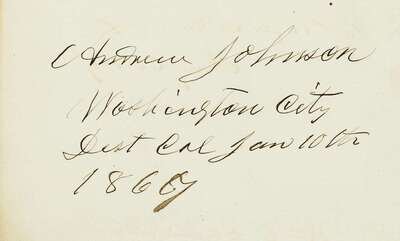 Andrew Johnson
Washington City
Dist Col Jan 10th
1867